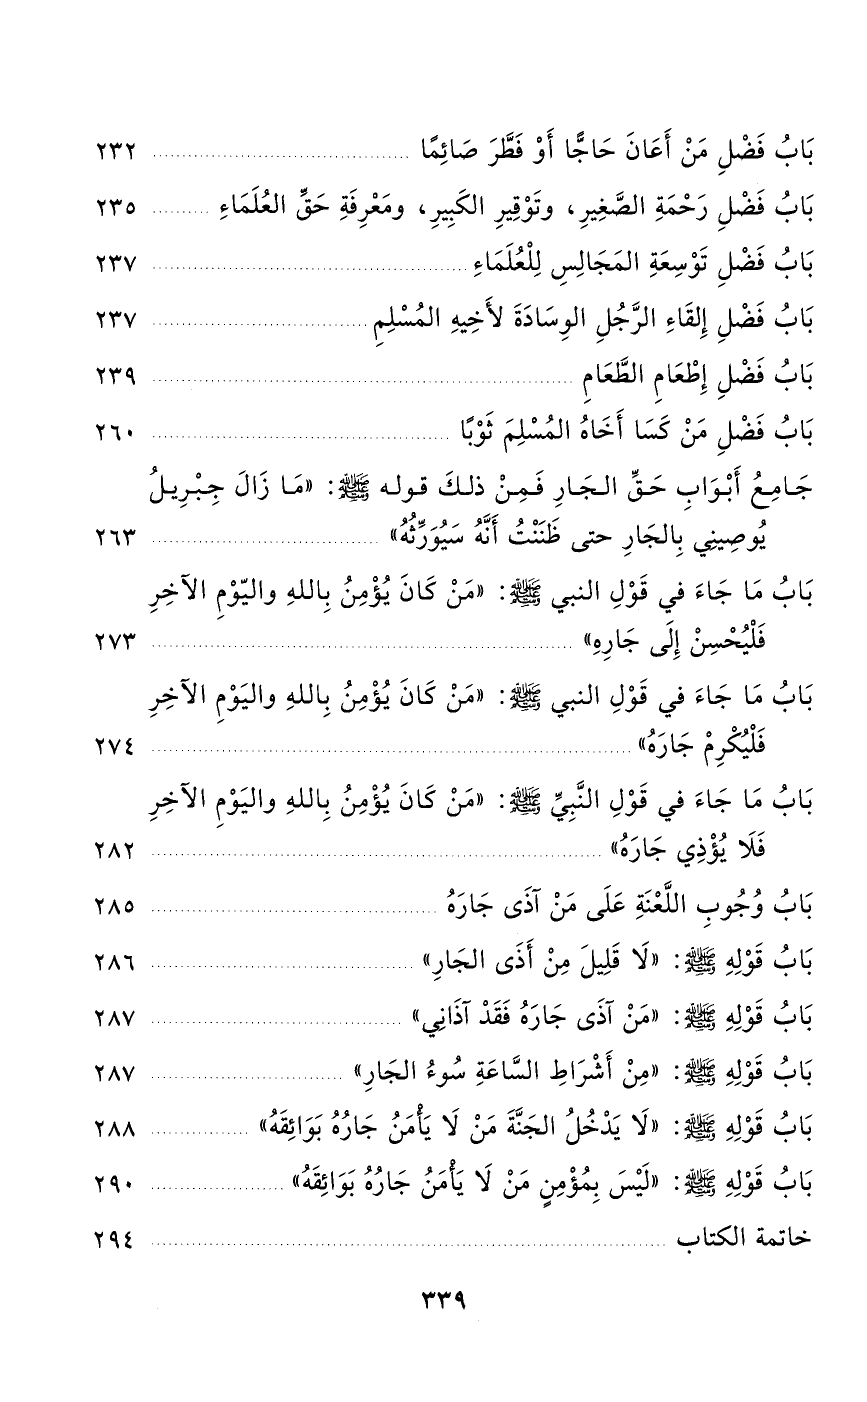 بَابُ فَضْلِ مَنْ أَعَانَ حَاجًّا أَوْ فَطَّرَ صَائِمًا ........ ٢٣٢
بَابُ فَضْلِ رَحْمَةِ الصَّغِيرِ، وتَوْقِيرِ الكَبِيرِ، ومَعْرِفَةِ حَقِّ العُلَمَاءِ ........ ٢٣٥
بَابُ فَضْلِ تَوْسِعَةِ المَجَالِسِ لِلْعُلَمَاءِ ........ ٢٣٧
بَابُ فَضْلِ إِلقَاءِ الرَّجُلِ الوِسَادَةَ لأَخِيهِ المُسْلِمِ ........ ٢٣٧
بَابُ فَضْلِ إِطْعَامِ الطَّعَامِ ........ ٢٣٩
بَابُ فَضْلِ مَنْ كَسَا أَخَاهُ المُسْلِمَ ثَوْبًا ........ ٢٦٠
جَامِعُ أَبْوَابِ حَقِّ الجَارِ فَمِنْ ذلكَ قوله ﷺ: «مَا زَالَ جِبْرِيلُ
يُوصِينِي بِالجَارِ حتى ظَنَنْتُ أَنَّهُ سَيُورَِّثُهُ» ........ ٢٦٣
بَابُ مَا جَاءَ في قَوْلِ النبي ﷺ: «مَنْ كَانَ يُؤْمِنُ بِاللهِ واليّوْمِ الآخِرِ
فَلْيُحْسِنْ إِلَى جَارِهِ» ........ ٢٧٣
بَابُ مَا جَاءَ في قَوْلِ النبي ﷺ: «مَنْ كَانَ يُؤْمِنُ بِاللهِ واليَوْمِ الآخِرِ
فَلْيُكْرِمْ جَارَهُ» ........ ٢٧٤
بَابُ مَا جَاءَ في قَوْلِ النَّبِيِّ ﷺ: «مَنْ كَانَ يُؤْمِنُ بِاللهِ واليَوْمِ الآخِرِ
فَلَا يُؤْذِي جَارَهُ» ........ ٢٨٢
بَابُ وُجُوبِ اللَّعْنَةِ عَلَى مَنْ آذَى جَارَهُ ........ ٢٨٥
بَابُ قَوْلِهِ ﷺ: «لَا قَلِيلَ مِنْ أَذَى الجَارِ» ........ ٢٨٦
بَابُ قَوْلِهِ ﷺ: «مَنْ آذَى جَارَهُ فَقَدْ آذَانِي» ........ ٢٨٧
بَابُ قَوْلِهِ ﷺ: «مِنْ أَشْرَاطِ السَّاعَةِ سُوءُ الجَارِ» ........ ٢٨٧
بَابُ قَوْلِهِ ﷺ: «لَا يَدْخُلُ الجَنَّةَ مَنْ لَا يَأْمَنُ جَارُهُ بَوَائِقَهُ» ........ ٢٨٨
بَابُ قَوْلِهِ ﷺ: «لَيْسَ بِمُؤْمِنٍ مَنْ لَا يَأْمَنُ جَارُهُ بَوَائِقَهُ» ........ ٢٩٠
خاتمة الكتاب ........ ٢٩٤
٣٣٩